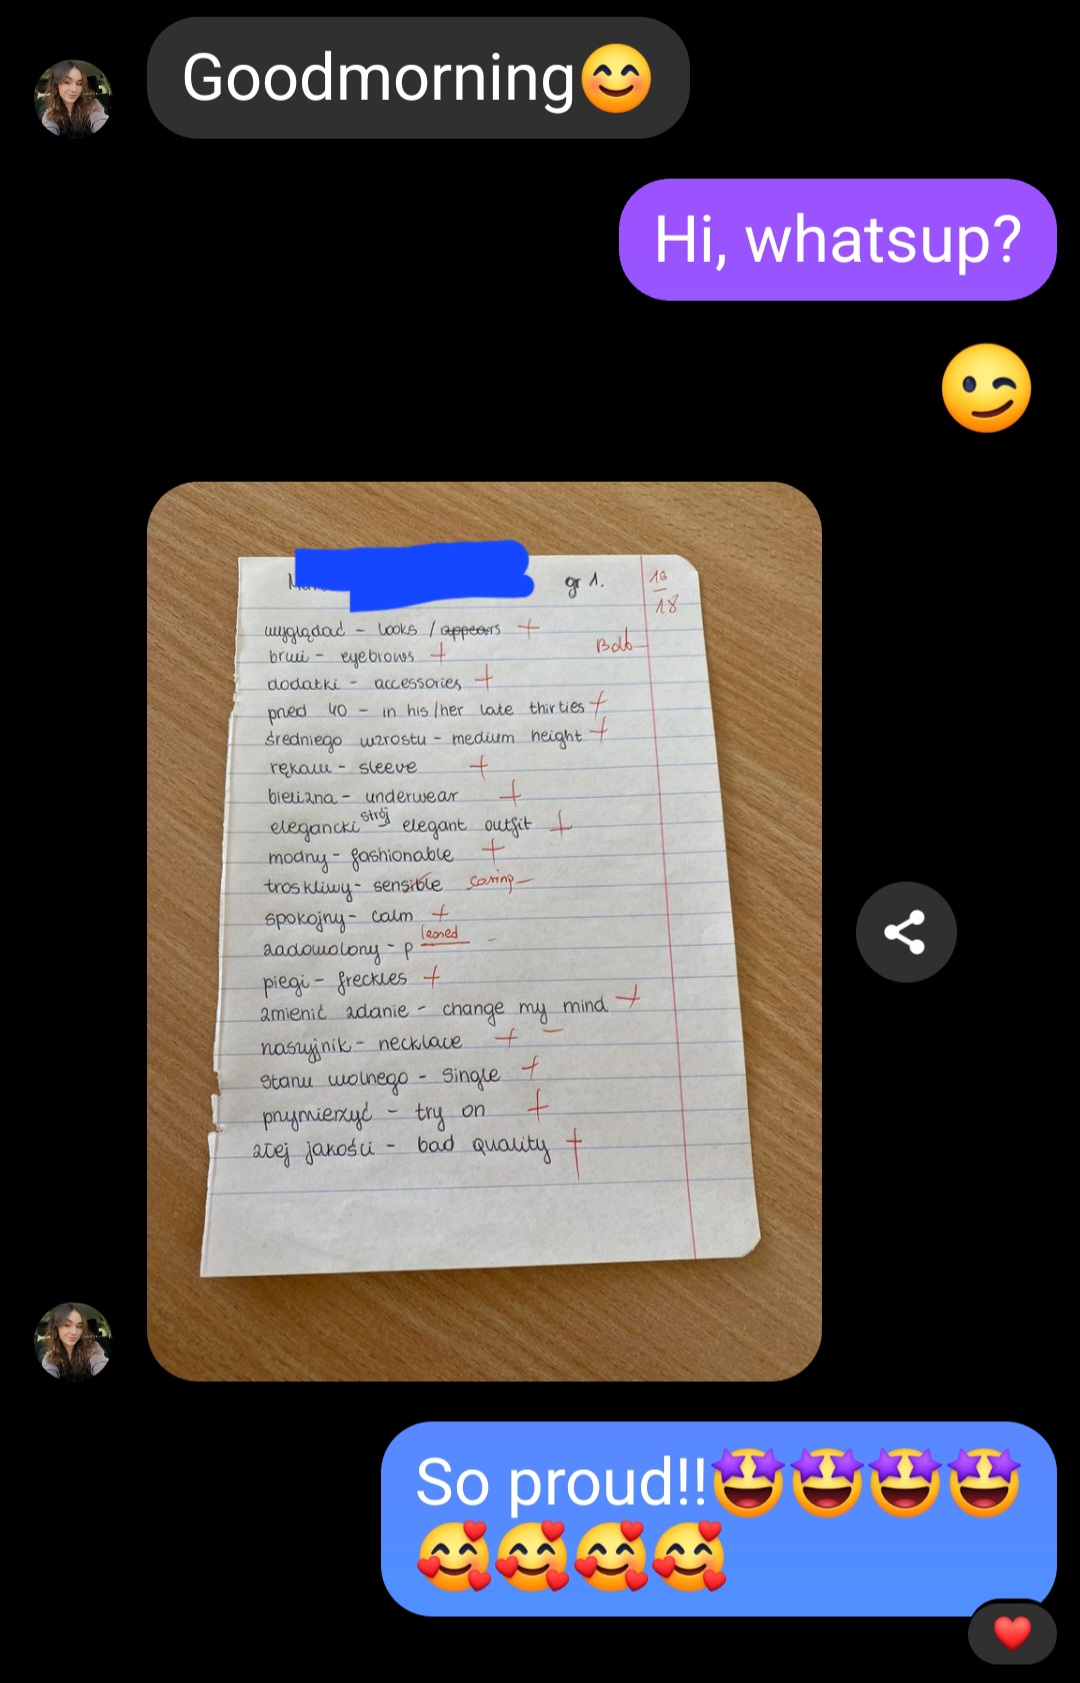 Goodmorning😊
Hi, whatsup?
😉
gr 1.
16
18
wyglądać - looks / appears +
Bdb
brwi - eyebrows +
dodatki - accessories +
przed 40 - in his/her late thirties +
średniego wzrostu - medium height +
rękaw - sleeve +
bielizna - underwear +
elegancki strój elegant outfit +
modny - fashionable +
troskliwy - sensible caring -
spokojny - calm +
zadowolony - pleased -
piegi - freckles +
zmienić zdanie - change my mind +
naszyjnik - necklace + -
stanu wolnego - single +
przymierzyć - try on +
złej jakości - bad quality +
So proud!!🤩🤩🤩🤩
🥰🥰🥰🥰
❤️